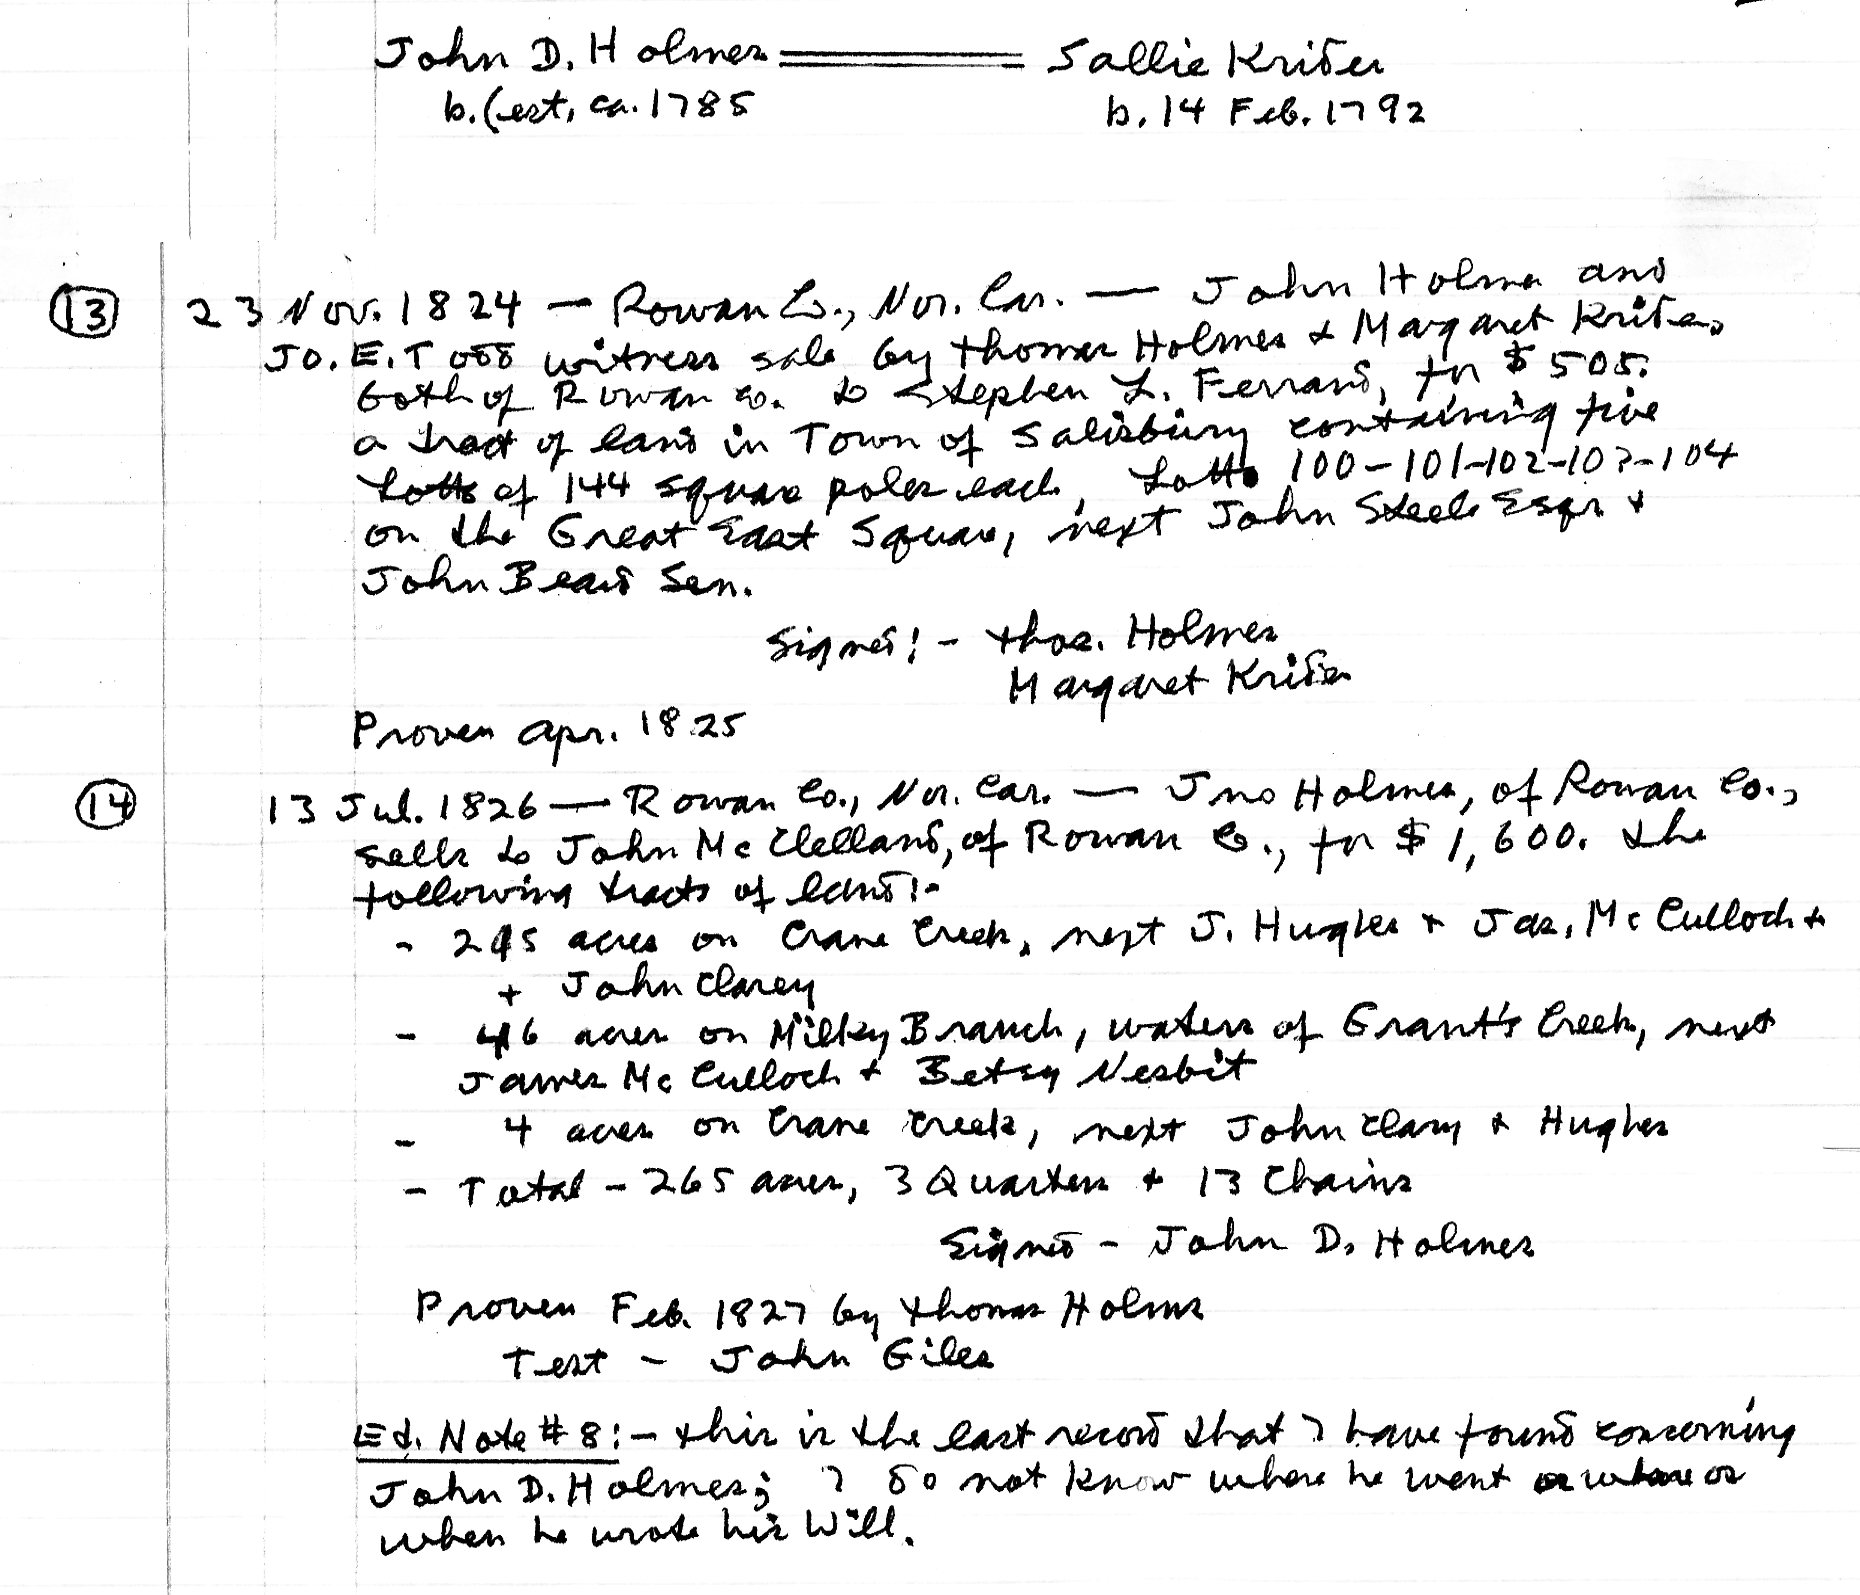 John D. Holmes ══════ Sallie Krider
b. (est, ca. 1785 b. 14 Feb. 1792
(13) 23 Nov. 1824 — Rowan Co., Nor. Car. — John Holmes and
Jo. E. Todd witness sale by Thomas Holmes + Margaret Krider,
both of Rowan Co. to Stephen L. Ferrand, for $505.
a tract of land in Town of Salisbury containing five
Lotts of 144 square poles each, Lotts 100-101-102-103-104
on the Great East Square, next John Steele Esqr +
John Beard Sen.
Signed:- Thos. Holmes
Margaret Krider
Proven Apr. 1825
(14) 13 Jul. 1826 — Rowan Co., Nor. Car. — Jno Holmes, of Rowan Co.,
sells to John McClelland, of Rowan Co., for $1,600. the
following tracts of land:-
- 215 acres on Crane Creek, next J. Hughes + Jas. McCulloch +
+ John Clarey
- 46 acres on Milky Branch, waters of Grant's Creek, next
James McCulloch + Betsy Nesbit
- 4 acres on Crane Creek, next John Clary + Hughes
- Total - 265 acres, 3 Quarters + 13 Chains
Signed - John D. Holmes
Proven Feb. 1827 by Thomas Holmes
Test - John Giles
Ed. Note #8:- This is the last record that I have found concerning
John D. Holmes; I do not know where he went or where or
when he wrote his Will.